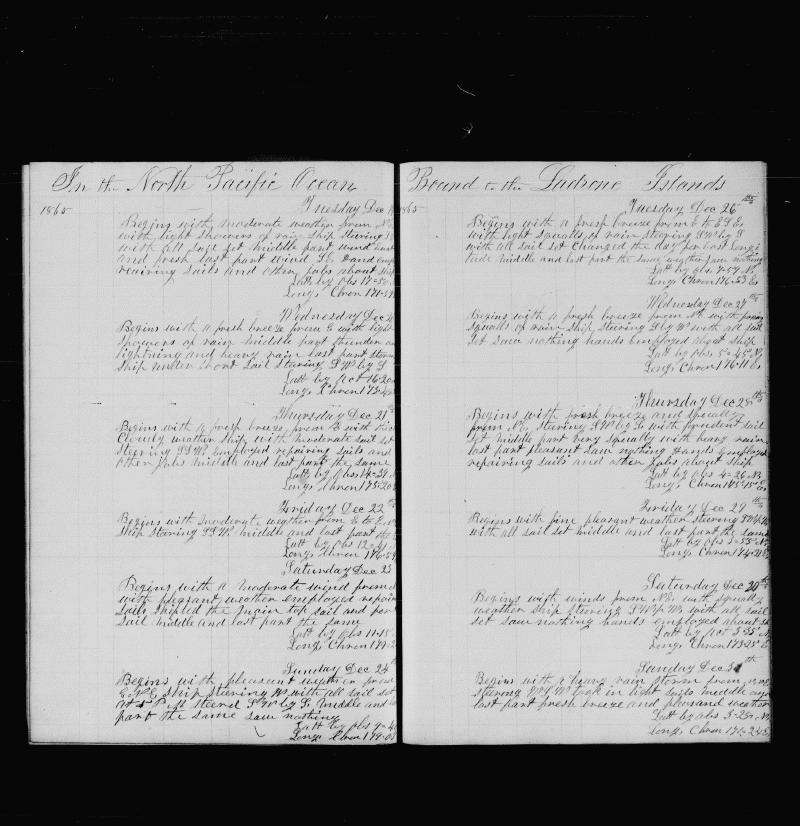 In the North Pacific Ocean
1865
Tuesday Dec
Begins with moderate weather from
with light showers of rain Ship Steering
with all sail set middle part wind
and fresh last part wind hand emp
repairing sails and other jobs about ship
Latt by Obs 17-50
Long Chron 171-59
Wednesday Dec 2
Begins with a fresh breeze from E with light
Showers of rain middle part thunder an
lightning and heavy rain last part
Ship under Short Sail Steering SW by S
Latt by Act 16-20
Long Chron 173-
Thursday Dec 21st
Begins with a fresh breeze from E with
Cloudy weather Ship with moderate sail set
Steering SSW Employed repairing Sails and
Other jobs middle and last part the same
Latt by Obs 14-
Long Chron 175-20
Friday Dec 22nd
Begins with moderate weather from E to E
Ship Steering SSW middle and last part the
Latt by Obs 12-
Long Chron 176-59
Saturday Dec 23
Begins with a moderate wind from
with pleasant weather employed repairin
Sails shifted the main top sail and
Sail middle and last part the same
Latt by Obs 11-15
Long Chron 179-
Sunday Dec 24th
Begins with pleasant weather from
E.N.E Ship Steering W with all sail set
At 5 P M Steered SW by S middle and la
part the same saw nothing
Latt by Obs 9-
Long Chron 179-
Bound to the Ladrone Islands
1865
Tuesday Dec 26th
Begins with a fresh breeze from E to ESE
with light Squalls of rain Steering SW by S
with all sail set Changed the day for East Longi
tude middle and last part the same weather saw nothing
Latt by obs 7-57 N
Long Chron 176-53 E
Wednesday Dec 27th
Begins with a fresh breeze from NE with
Squalls of rain Ship Steering S by W with all sail
Set Saw nothing hands employed about Ship
Latt by Obs 5-45 N
Long Chron 176-11 E
Thursday Dec 28th
Begins with fresh breeze and squally
from NE Steering SW by S with prudent sail
set middle part very squally with heavy rain
last part pleasant saw nothing Hands employed
repairing sails and other jobs about Ship
Latt by Obs 4-26 N
Long Chron 175-15 E
Friday Dec 29th
Begins with fine pleasant weather Steering
with all sail set middle and last part the same
Latt by Obs 3-55 N
Long Chron 174-
Saturday Dec 30th
Begins with winds from NE with squally
weather Ship Steering with all sail
set saw nothing hands employed about
Latt by Act 3-35 N
Long Chron 173-25 E
Sunday Dec 31th
Begins with a heavy rain Storm from
Steering took in light sails middle and
last part fresh breeze and pleasant weather
Latt by obs 3-25 N
Long Chron 171-24 E